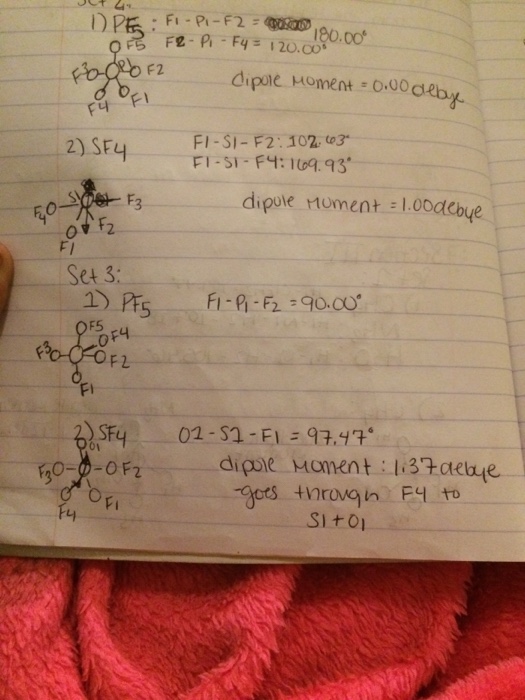 Set 2:
1) PF5 : F1-P1-F2 = 180.00°
F2-P1-F4 = 120.00°
F5
F3 P1 F2
F4 F1
dipole moment = 0.00 debye
2) SF4 F1-S1-F2: 102.63°
F1-S1-F4: 169.93°
S1
F4 F3
F2
F1
dipole moment = 1.00 debye
Set 3:
1) PF5 F1-P1-F2 = 90.00°
F5
F4
F3 F2
F1
2) SF4 O1-S1-F1 = 97.47°
O1
F3 F2
F4 F1
dipole moment: 1.37 debye
-goes through F4 to
S1 + O1